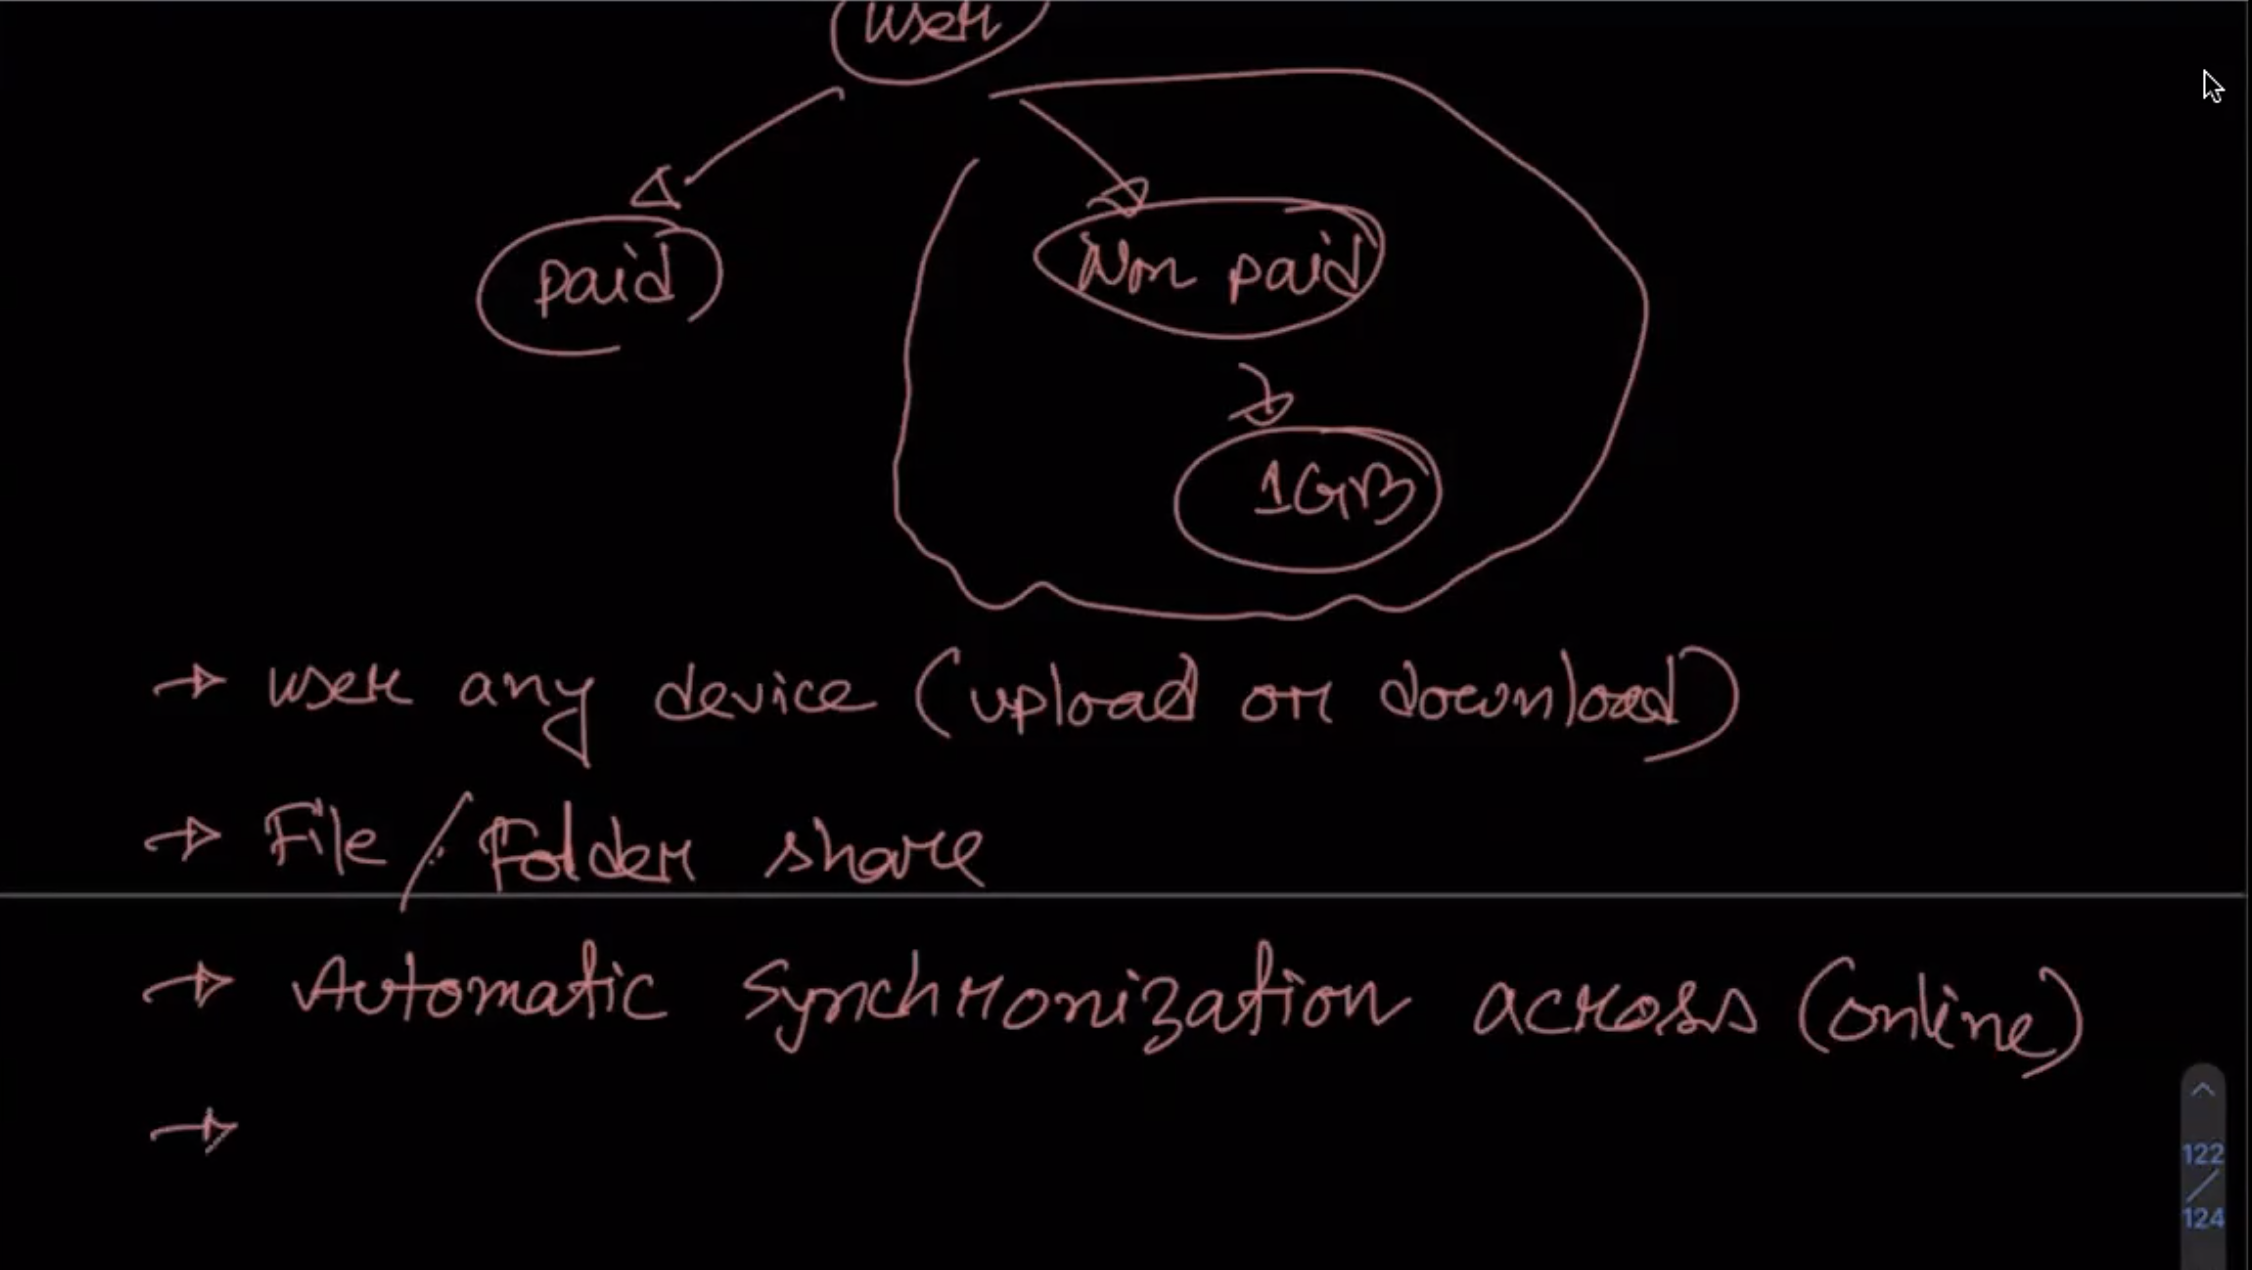 User
paid
Non paid
1GB
→ User any device (upload or download)
→ File/Folder share
→ Automatic synchronization across (online)
→
122
/
124